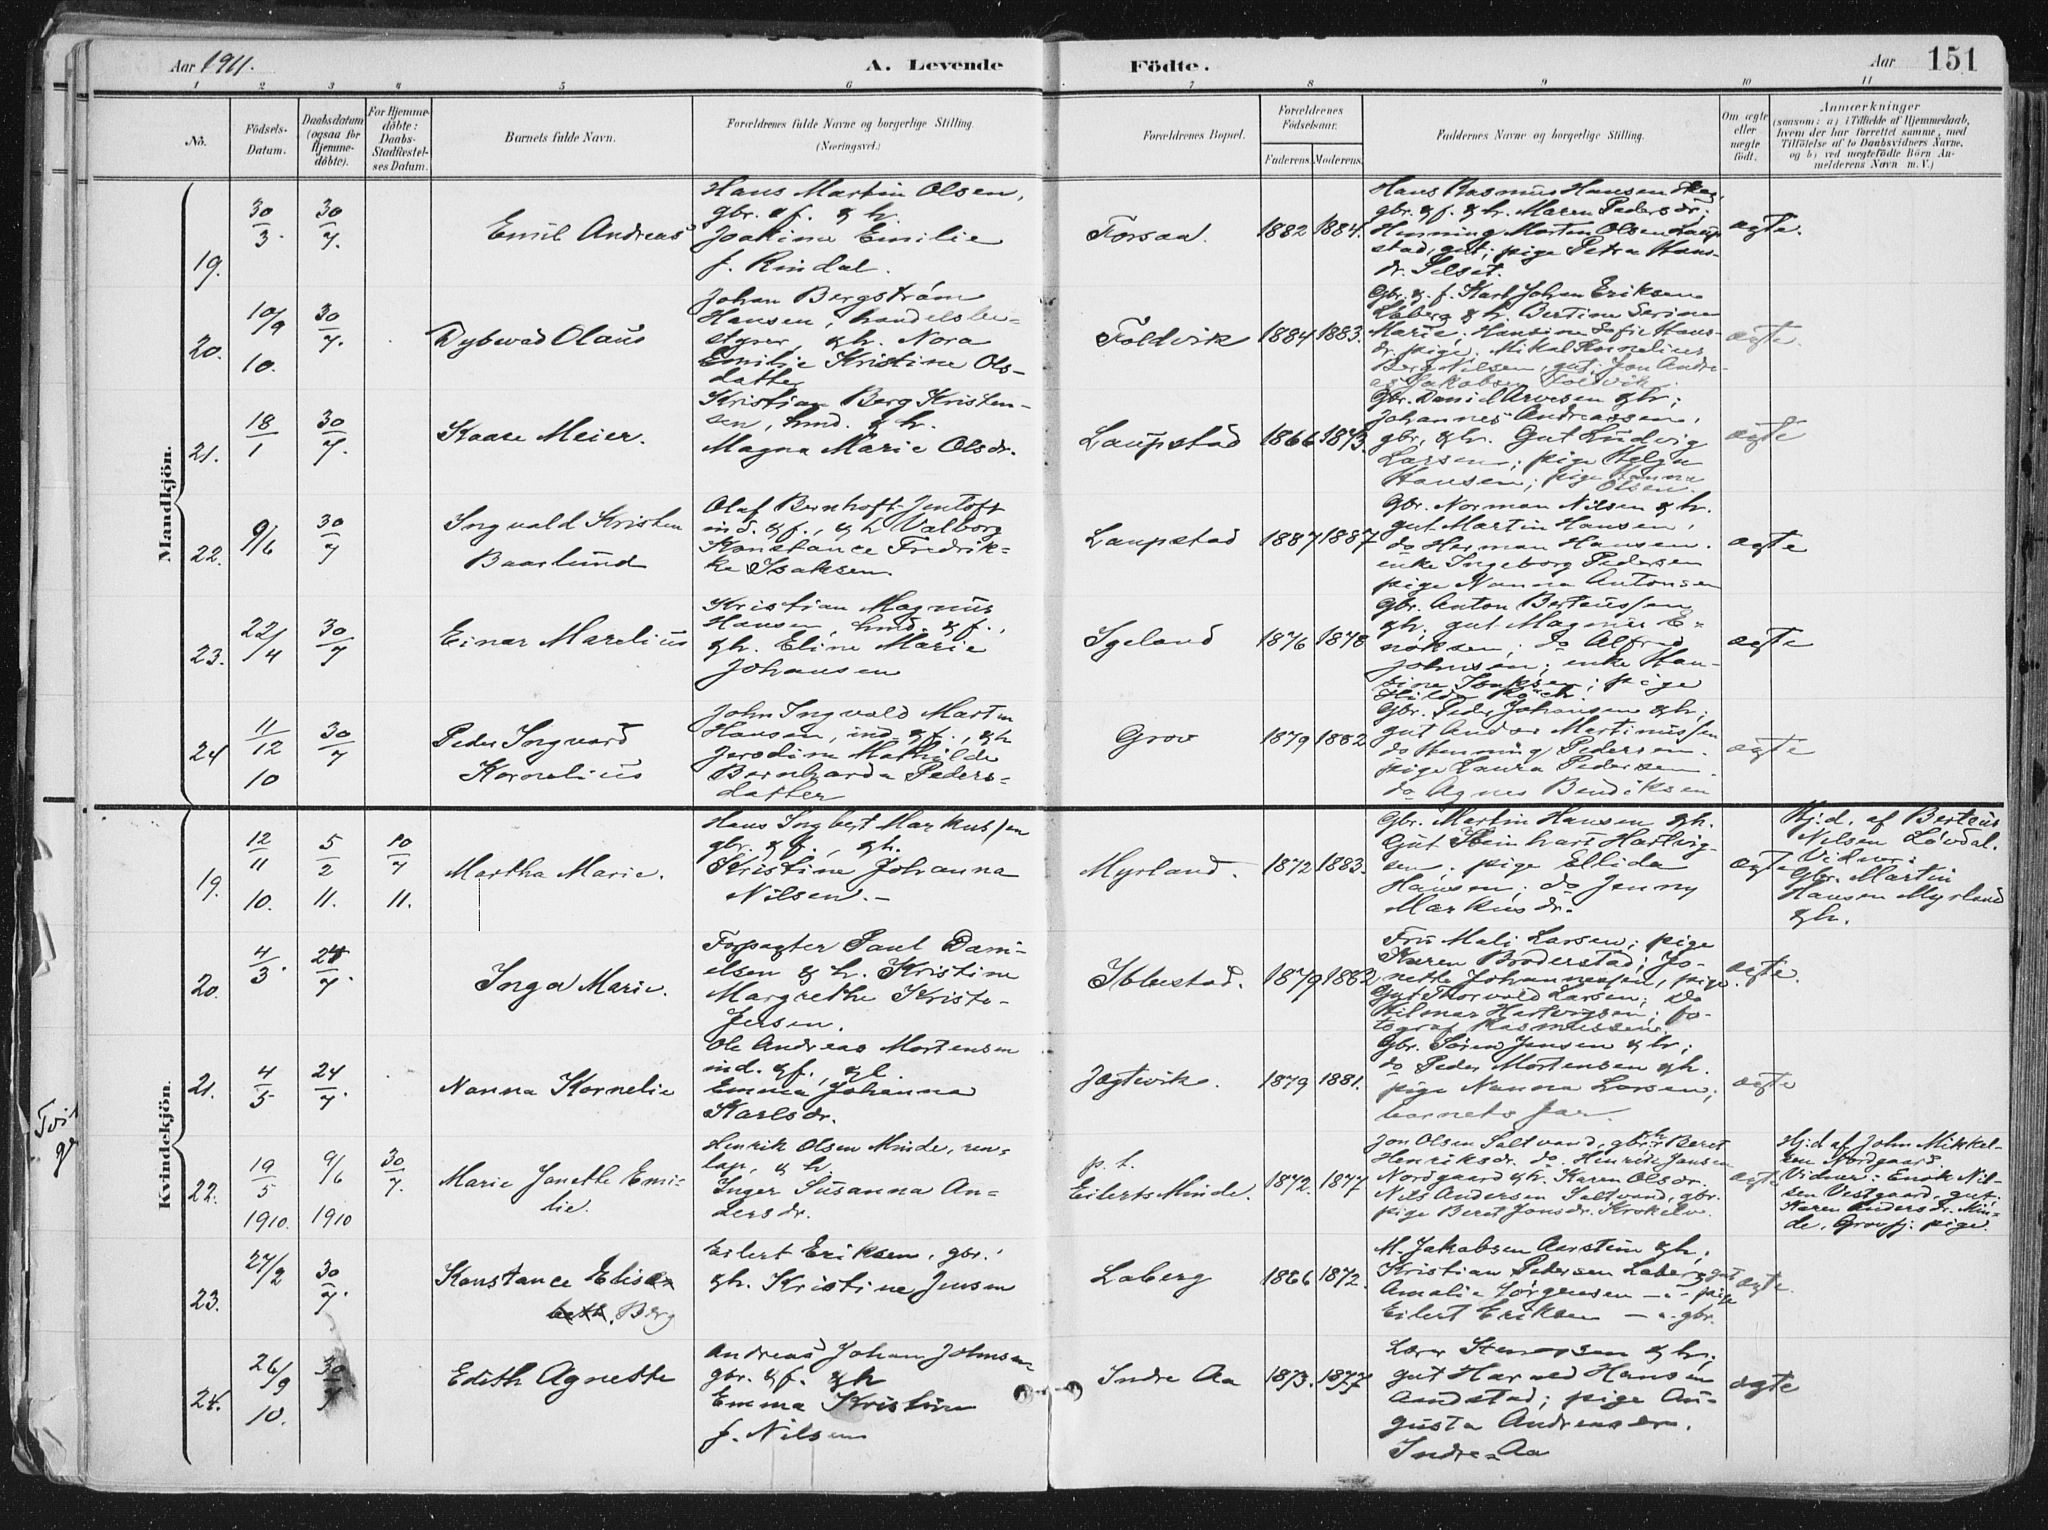 Aar 1911.
A. Levende
Födte.
Aar
151
1 2 3 4 5 6 7 8 9 10 11
No.
Födsels-
Datum.
Daabsdatum
(ogsaa for
Hjemme-
döbte).
For Hjemme-
döbte:
Daabs-
Stadfæstel-
ses Datum.
Barnets fulde Navn.
Forældrenes fulde Navne og borgerlige Stilling.
(Næringsvei.)
Forældrenes Bopæl.
Forældrenes
Födselsaar.
Faderens. Moderens.
Faddernes Navne og borgerlige Stilling.
Om ægte
eller
uægte
födt.
Anmærkninger
(saasom: a) i Tilfælde af Hjemmedaab,
hvem der har forrettet samme, med
Tilföielse af to Daabsvidners Navne,
og b) ved uægtefödte Börn An-
melderens Navn m. V.)
Mandkjön.
19.
30/3.
30/7.
Emil Andreas
Hans Martin Olsen,
gbr. & f. & h.
Joakime Emilie
f. Rindal.
Forsaa.
1882 1884.
Hans Rasmus Hansen
gbr. & f. & h. Maren Pedersdr;
Henning Morten Olsen Laup
stad, gut; pige Petra Hans-
dr. Selset.
ægte.
20.
10/9
10.
30/7.
Dybwad Olaus
Johan Bergström
Hansen, handelsbe-
styrer, & h. Nora
Emilie Kristine Ols-
datter
Foldvik
1884 1883.
Gbr. & f. Karl Johan Eriksen
Laberg & h. Bertine Serine
Marie; Hansine Sofie Hans-
dr. pige. Mikal Kornelius
Berg Nilsen, gut; Jon Andre-
as Jakobsen Foldvik.
ægte.
21.
18/1
30/7.
Kaare Meier.
Kristian Berg Kristen-
sen, hmd. & h.
Magna Marie Olsdr.
Laupstad
1866 1873.
Gbr. Daniel Arvesen & h;
Johannes Andreassen,
gbr, & h. Gut Ludvig
Larsen; pige Helga
Hansen; pige Hanna
Olsen.
ægte
22.
9/6
30/7
Ingvald Kristen
Baarlund
Olaf Bernhoft Jentoft
ind. & f., & h Valborg
Konstance Fredrik-
ke Isaksen.
Laupstad
1887 1887
Gbr. Norman Nilsen & h.
gut Martin Hansen,
do Herman Hansen.
enke Ingeborg Pedersen
pige Nanna Antonsen
ægte
23.
22/4
30/7
Einar Marelius
Kristian Magnus
Hansen, hmd. & f.,
& h. Eline Marie
Johansen
Igeland
1876 1878
Gbr. Anton Berteussen
& h, gut Magnus E-
noksen; do Alfred
Johnsen; enke Han-
sine Isaksen; pige
Hilda Koch.
ægte
24
11/12
10
30/7
Peder Ingvard
Kornelius
John Ingvald Martin
Hansen, ind. & f., & h
Jerodina Mathilde
Bernharda Peders-
datter
Grov
1879 1882
Gbr. Peder Johansen & h;
gut Andor Martinussen
do Henning Pedersen.
pige Laura Pedersen.
do Agnes Bendiksen
ægte
Kvindekjön.
19.
12/11
10.
5/2
11.
10/7
11.
Martha Marie.
Hans Ingbert Markussen
gbr. & f., & h.
Kristine Johanna
Nilsen.-
Myrland.
1872 1883.
Gbr. Martin Hansen & h.
Gut Steinhart Hartvig-
sen; pige Ellida
Hansen; do Jenny
Markusdr.
ægte
Hj.d. af Berteus
Nilsen Lövdal.
Vidner:
Gbr. Martin
Hansen Myrland
& h.
20.
4/3.
24/7.
Inga Marie.
Forpagter Paul Dani-
elsen & h. Kristine
Margrethe Kristo-
fersen.
Ibbestad.
1879 1882
Fru Mali Larsen; pige
Karen Broderstad; Jo-
nette Johannessen, pige.
Gut Thorvald Larsen; do
Hilmar Hartvigsen; fo-
tograf Rasmussen.
ægte.
21.
4/5
24/7.
Nanna Kornelie
Ole Andreas Mortensen
ind. & f., & h.
Emma Johanna
Karlsdr.
Jægtevik.
1879 1881.
Gbr. Sören Jensen & h;
do Peder Mortensen & h.
pige Nanna Larsen;
barnets far
ægte
22.
19/5
1910.
9/6
1910
30/7.
Marie Jonette Emi-
lie.
Henrik Olsen Minde, ren-
lap, & h.
Inger Susanna An-
dersdr.
p. t.
Eilerts Minde.
1872. 1877
Jon Olsen Saltvand, gbr. & h Beret
Henriksdr. do. Henrik Jensen
Nordgaard & h. Karen Olsdr.
Nils Andersen Saltvand, gbr.
pige Beret Jonsdr. Krokelv.
ægte
Hj.d af John Mikkel-
sen Nordgaard
Vidner: Enok Nil-
sen Vestgaard, gut.
Karen Andersdr. Min-
de, Grovfj. pige.
23.
27/2
30/7
Konstance Elisa
beth. Berg
Eilert Eriksen, gbr.
& h. Kristine Jensen
Laberg
1866 1872.
M. Jakobsen Aarstein & h;
Kristian Pedersen Laberg gut
Amalie Jörgensen — " — pige
Eilert Eriksen — " . gbr.
ægte.
24.
26/9
10.
30/7
Edith Agnette
Andreas Johan Johnsen
gbr. & f. & h
Emma Kristine
f. Nilsen
Indre Aa
1873. 1877
Lærer Stenersen & h;
gut Harald Hansen
Aandstad; pige Au-
gusta Andreasdr.
Indre Aa
ægte